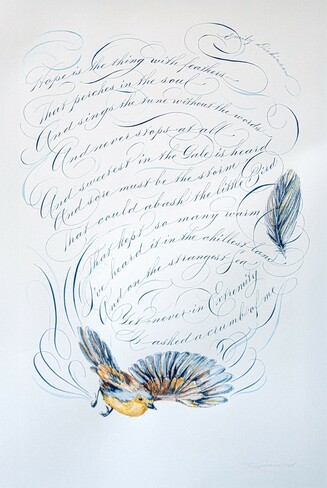 Emily Dickinson
Hope is the thing with feathers
That perches in the soul
And sings the tune without the words
And never stops at all
And sweetest in the Gale is heard
And sore must be the storm
That could abash the little Bird
That kept so many warm
I've heard it in the chillest land
And on the strangest Sea
Yet never in Extremity
It asked a crumb of me